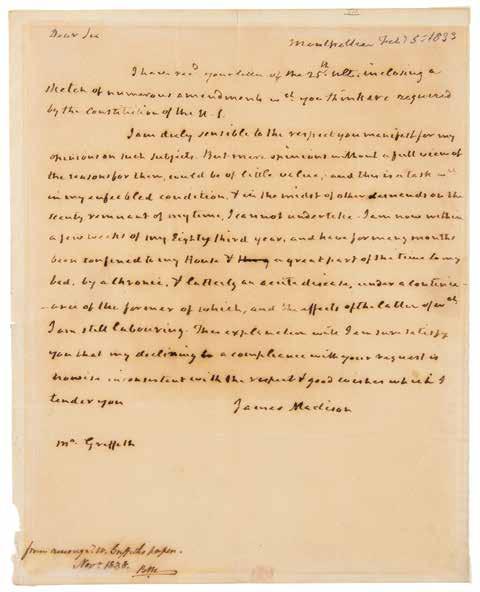 Dear Sir
Montpellier Feby 5. 1833
I have recd your letter of the 25th Ulto. inclosing a
sketch of numerous amendments wch you think are required
by the Constitution of the U. S.
I am duly sensible to the respect you manifest for my
opinions on such subjects. But mere opinions without a full view of
the reasons for them, could be of little value; and this is a task wch
in my enfeebled condition, & in the midst of other demands on the
scanty remnant of my time, I cannot undertake. I am now within
a few weeks of my Eighty third year, and have for many months
been confined to my House & a great part of the time to my
bed, by a chronic, & latterly an acute disease, under a continu-
-ance of the former of which, and the effects of the latter of wch
I am still labouring. This explanation will I am sure satisfy
you that my declining a compliance with your request is
nowise inconsistent with the respect & good wishes which I
tender you
James Madison
Mr. Griffith
from amongst W. Griffith's papers.
Novr. 1838.